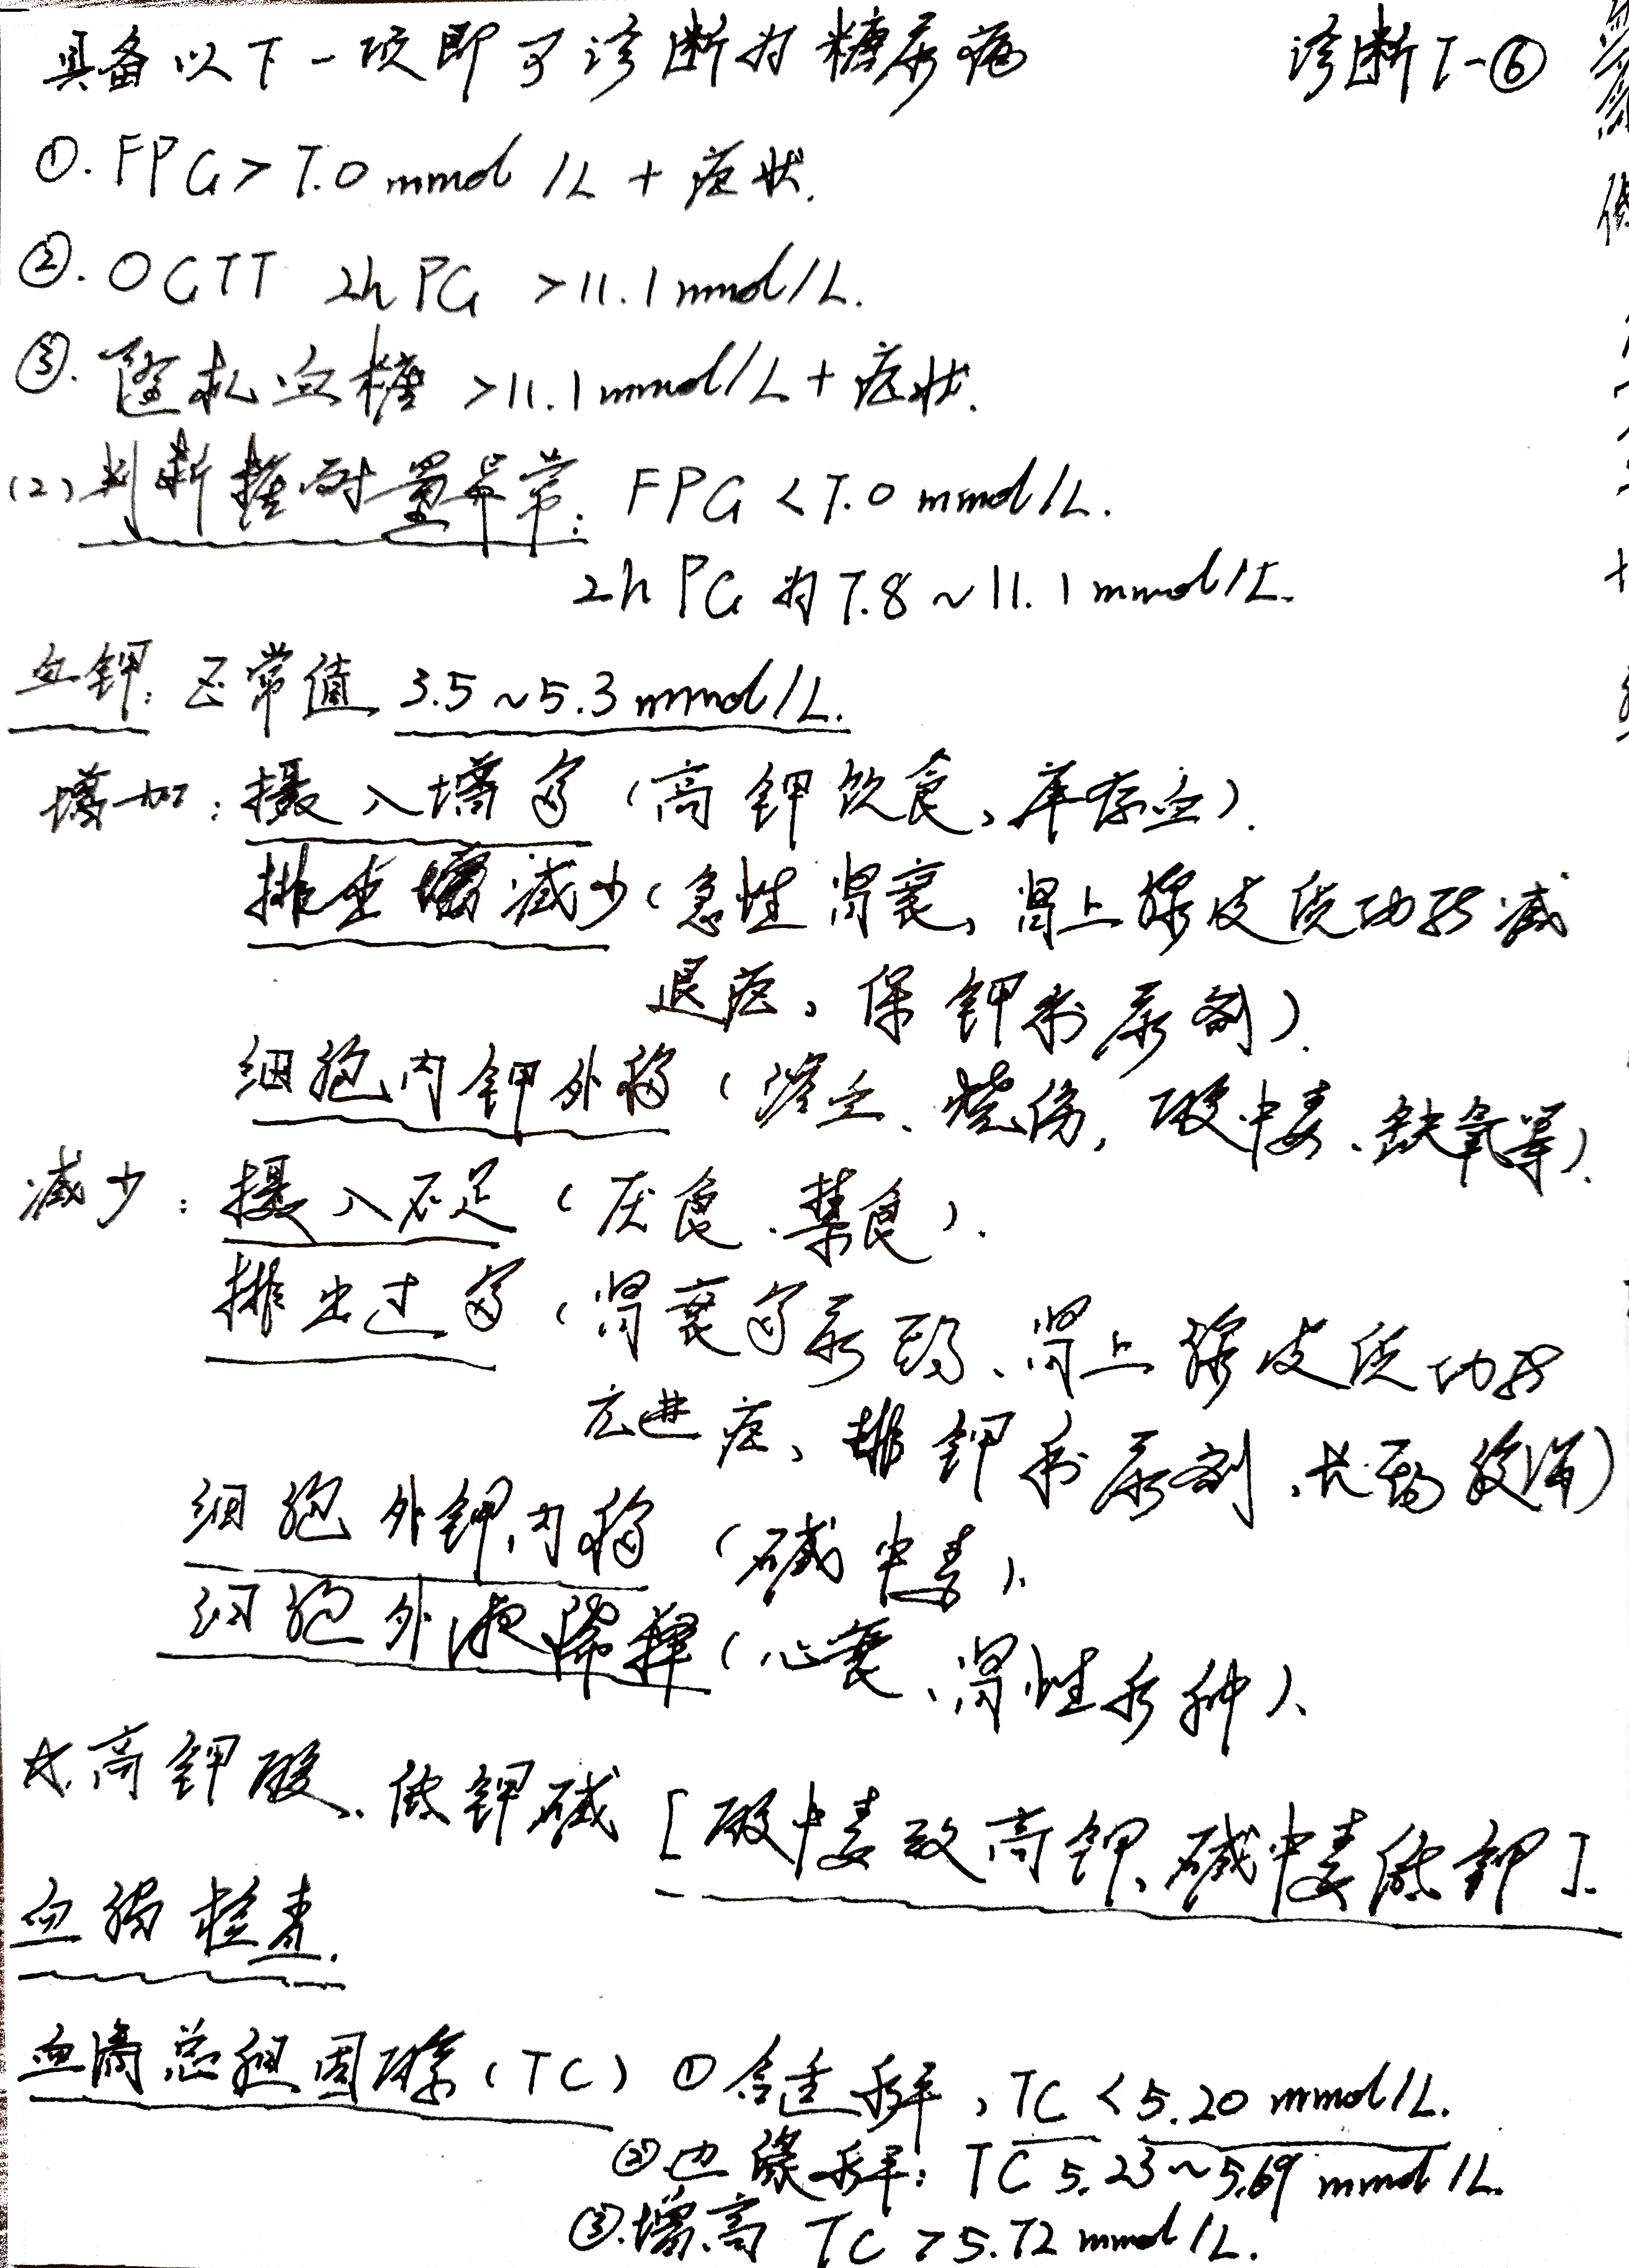 具备以下一项即可诊断为糖尿病 诊断I-⑥
①. FPG>7.0 mmol/L + 症状.
②. OGTT 2h PG >11.1 mmol/L.
③. 随机血糖 >11.1 mmol/L + 症状.
(2) 判断糖耐量异常: FPG <7.0 mmol/L.
2h PG 为 7.8~11.1 mmol/L.
血钾: 正常值 3.5~5.3 mmol/L.
增加: 摄入增多 (高钾饮食、库存血).
排出减少 (急性肾衰、肾上腺皮质功能减
退症、保钾利尿剂).
细胞内钾外移 (溶血、烧伤, 酸中毒、缺氧等).
减少: 摄入不足 (厌食、禁食).
排出过多 (肾衰多尿期、肾上腺皮质功能
亢进症、排钾利尿剂、长期腹泻)
细胞外钾内移 (碱中毒).
细胞外液稀释 (心衰、肾性水肿).
☆高钾酸、低钾碱 [酸中毒致高钾、碱中毒低钾].
血脂检查.
血清总胆固醇 (TC) ① 合适水平, TC <5.20 mmol/L.
②边缘水平: TC 5.23~5.69 mmol/L.
③.增高 TC >5.72 mmol/L.